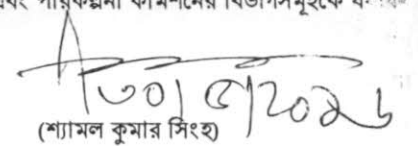 এবং পরিকল্পনা কমিশনের বিভাগসমূহকে
৩০|৫|২০২৬
(শ্যামল কুমার সিংহ)